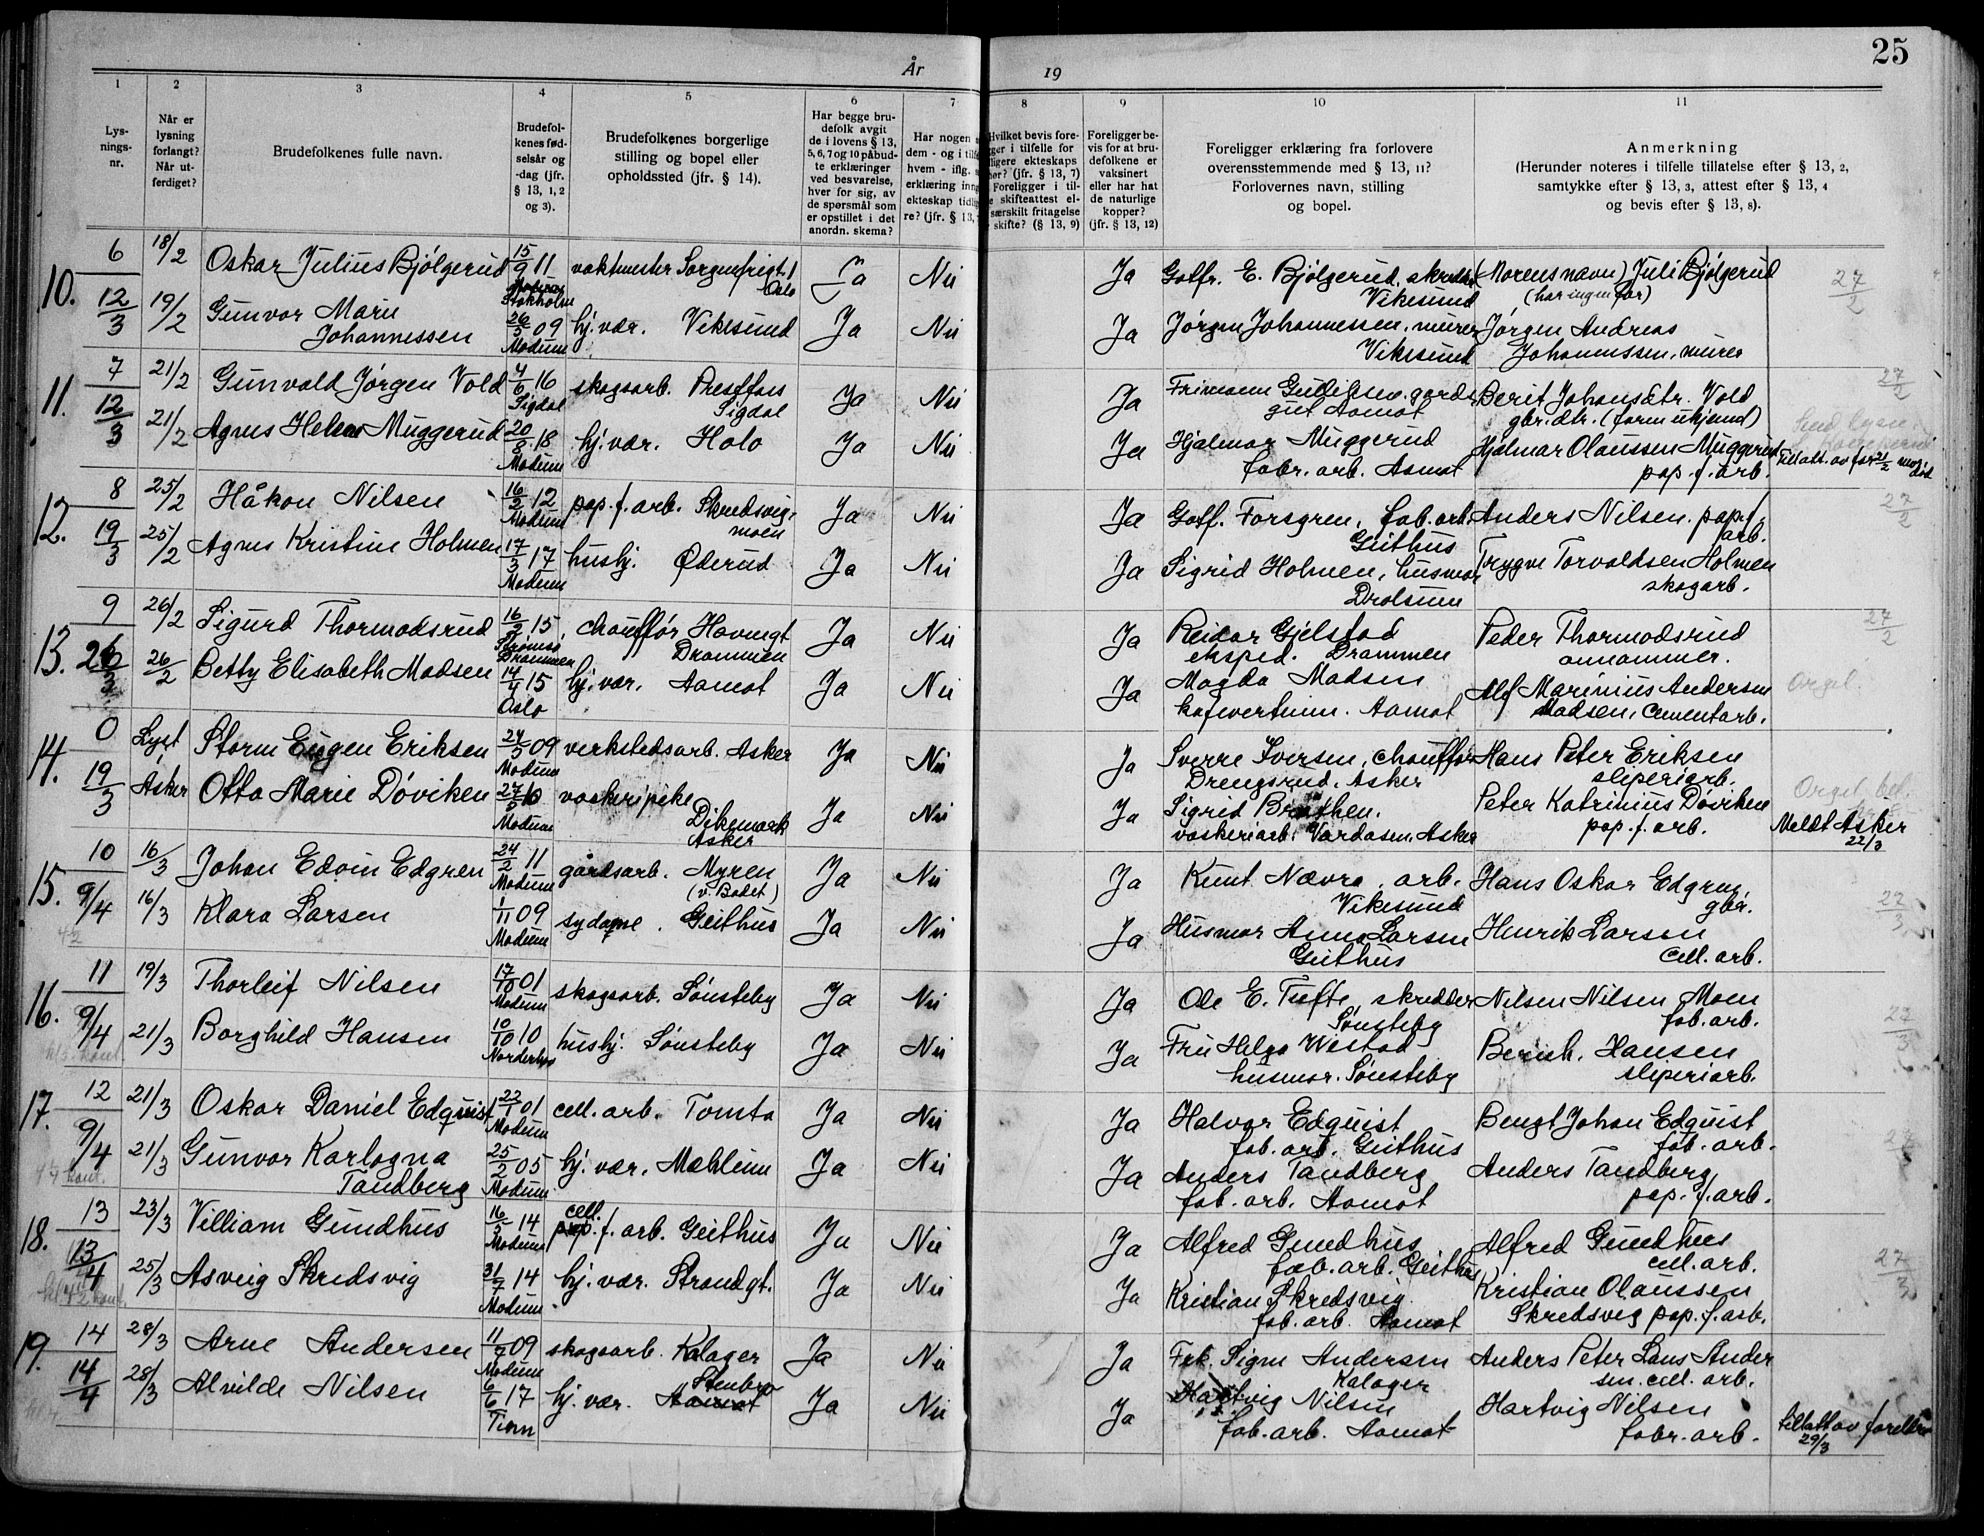 År 19
25
1 2 3 4 5 6 7 8 9 10 11
Lys-
nings-
nr.
Når er
lysning
forlangt?
Når ut-
ferdiget?
Brudefolkenes fulle navn.
Brudefol-
kenes fød-
selsår og
-dag (jfr.
§ 13, 1, 2
og 3).
Brudefolkenes borgerlige
stilling og bopel eller
opholdssted (jfr. § 14).
Har begge bru-
defolk avgit
de i lovens § 13,
5, 6, 7 og 10 påbud-
te erklæringer
ved besvarelse,
hver for sig, av
de spørsmål som
er opstillet i det
anordn. skema?
Har nogen
dem - og i tilf
hvem - iflg.
erklæring inn
ekteskap tidli
re? (jfr. § 13,
Hvilket bevis fore-
ger i tilfelle for
ligere ekteskaps
hør? (jfr. § 13, 7)
Foreligger i til-
e skifteattest el-
særskilt fritagelse
skifte? (§ 13, 9)
Foreligger be-
vis for at bru-
defolkene er
vaksinert
eller har hat
de naturlige
kopper?
(jfr. § 13, 12)
Foreligger erklæring fra forlovere
overensstemmende med § 13, 11?
Forlovernes navn, stilling
og bopel.
Anmerkning
(Herunder noteres i tilfelle tillatelse efter § 13, 2,
samtykke efter § 13, 3, attest efter § 13, 4
og bevis efter § 13, 8).
10. 6 18/2 Oskar Julius Bjølgerud 15/9 11 Stokholm vaktmester Sorgenfrigt. 1 Oslo Ja Nei Ja Gotfr. E. Bjølgerud, skredder Vikesund (Morens navn) Juli Bjølgerud (har ingen far) 27/2
12/3 19/2 Gunvor Marie Johannessen 09 Modum hj. vær. Vikesund Ja Nei Ja Jørgen Johannessen, murer Vikesund Jørgen Andreas Johannessen, murer
11. 7 21/2 Gunvald Jørgen Vold 4/6 16 Sigdal skogsarb. Presffoss Sigdal Ja Nei Ja Gudilsen. gards gut Aamot Berit Johansdtr. Vold gbr. dtr. 27/2
12/3 21/2 Agnes Helene Muggerud 20/8 18 Modum hj. vær. Holo Ja Nei Ja Hjalmar Muggerud fabr. arb. Aamot Hjalmar Olaussen Muggerud pap. f. arb. Tillatt. av far 21/2 mor død
12. 8 25/2 Håkon Nilsen 16/2 12 Modum pap. f. arb. Skredsvig- moen Ja Nei Ja Gotf. Forsgren, fab. arb. Geithus Anders Nilsen. pap. f. arb. 27/2
19/3 25/2 Agnes Kristine Holmen 17/3 17 Modum hushj. Øderud Ja Nei Ja Sigrid Holmen, husmor Drolsum Trygve Torvaldsen Holmen skogarb.
13. 9 26/2 Sigurd Thormodsrud 15 Strømsø Drammen chauffør Havnegt Drammen Ja Nei Ja Reidar Gjelstad eksped. Drammen Peder Thormodsrud annammer. 27/2
26/3 26/2 Betty Elisabeth Madsen 14/4 15 Oslo hj. vær. Aamot Ja Nei Ja Magda Madsen kafevertinne. Aamot Alf Marinius Andersen Madsen, cementarb. Orgel.
14. 0 Lyst Asker Storm Eugen Eriksen 09 Modum verkstedsarb. Asker Ja Nei Ja Sverre Iversen, chauffør Drengsrud, Asker Hans Peter Eriksen sliperiarb.
19/3 Otto Marie Døviken Modum vaskeripike Dikemark Asker Ja Nei Ja Sigrid Braathen. vaskeriarb. Vardasen, Asker Peter Katrinius Døviken pap. f. arb. Orgel, Meldt Asker 22/3
15. 10 16/3 Johan Edvin Edgren 24/2 11 Modum gårdsarb. Myren (v. Badet) Ja Nei Ja Knut Nævra, arb. Vikesund Hans Oskar Edgren, gbr. 22/3
9/4 16/3 Klara Larsen 1/11 09 Modum sydame. Geithus Ja Nei Ja Husmor Anna Larsen Geithus Henrik Larsen cell. arb.
16. 11 19/3 Thorleif Nilsen 17/10 01 Modum skogsarb. Sønsteby Ja Nei Ja Ole E. Tufte, skredder Sønsteby Nilsen Nilsen Moen fab. arb. 27/3
9/4 21/3 Borghild Hansen 10/10 10 Norderhov hushj. Sønsteby Ja Nei Ja Fru Helga Westad husmor. Sønsteby Bernh. Hansen sliperiarb.
17. 12 21/3 Oskar Daniel Edquist 22/1 01 Modum cell. arb. Tomta Ja Nei Ja Halvor Edquist fab. arb. Geithus Bengt Johan Edquist fab. arb.
9/4 21/3 Gunvor Karlagna Tandberg 25/2 05 Modum hj. vær. Mæhlum Ja Nei Ja Anders Tandberg fab. arb. Aamot Anders Tandberg pap. f. arb.
18. 13 23/3 Villiam Gundhus 14 Modum cell. pap. f. arb. Geithus Ja Nei Ja Alfred Gundhus fab. arb. Geithus Alfred Gundhus cell. arb. 27/3
13/4 25/3 Asveig Skredsvig 31/7 14 Modum. hj. vær. Strandgt. Ja Nei Ja Kristian Skredsvig fab. arb. Aamot Kristian Olaussen Skredsvig pap. f. arb.
19. 14 28/3 Arne Andersen 09 Modum skogsarb. Kalager Ja Nei Ja Frk. Signe Andersen Kalager Anders Peter Laus Ander sen. cell. arb.
14/4 28/3 Alvilde Nilsen 6/6 17 Tinn hj. vær. Stenbro Aamot Ja Nei Ja Hartvig Nilsen fab. arb. Aamot Hartvig Nilsen fabr. arb. tillatt av foreldre 29/3